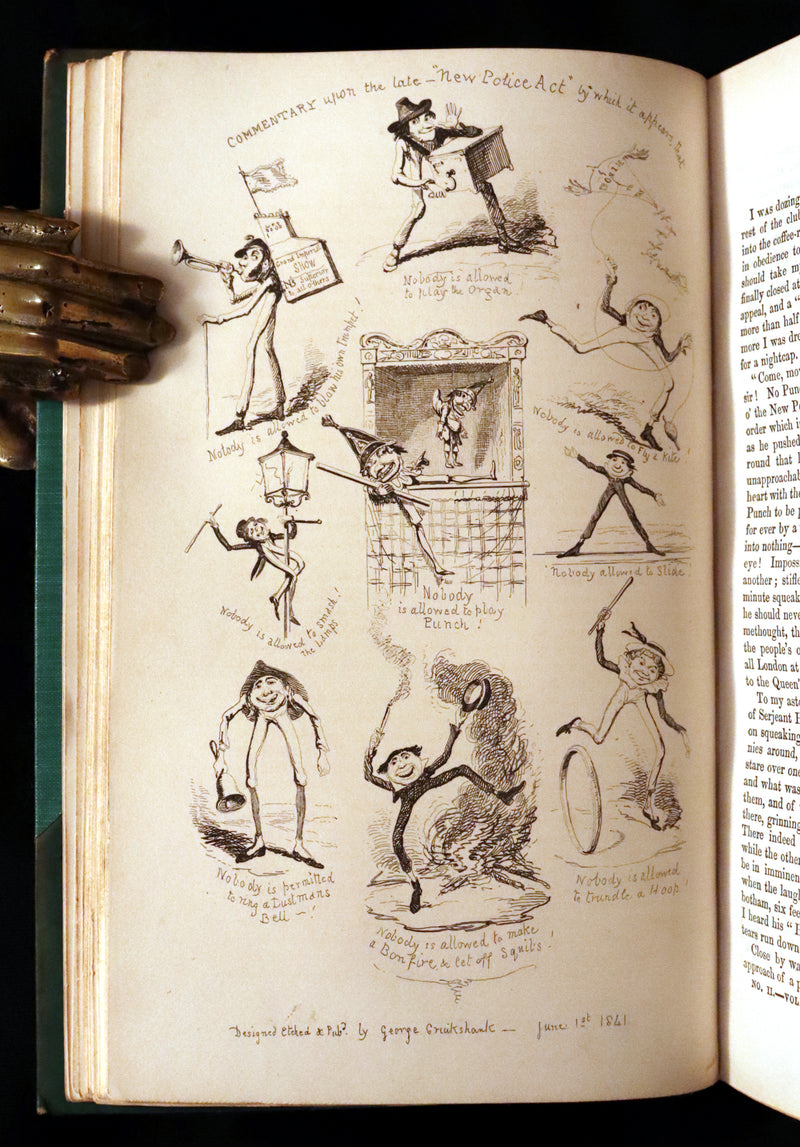 COMMENTARY upon the late - "New Police Act" by which it appears, that
Grand Imperial
SHOW
No Superior
to all others
Nobody is allowed
to play the Organ!
Nobody is allowed to blow his own Trumpet!
Nobody is allowed to Fly a Kite
Nobody is allowed to Smash!
the Lamps
Nobody
is allowed to play
Punch!
Nobody allowed to Slide
Nobody is permitted
to ring a Dustmans
Bell - !
Nobody is allowed to make
a Bonfire & let off Squibs!
Nobody is allowed
to trundle a Hoop!
Designed Etched & Pubd. by George Cruikshank - June 1st 1841
I was dozing
rest of the clu
into the coffee-r
in obedience to
should take m
finally closed at
appeal, and a "
more than half
more I was dre
for a nightcap.
"Come, mov
sir! No Pun
o' the New P
order which i
as he pushed
round that I
unapproachab
heart with the
Punch to be p
for ever by a
into nothing—
eye! Imposs
another; stifle
minute squeak
he should neve
methought, th
the people's o
all London at
to the Queen'
To my asto
of Serjeant H
on squeaking
nies around,
stare over one
and what was
them, and of
there, grinning
There indeed
while the other
be in imminen
when the laugh
botham, six fee
I heard his "H
tears run down
Close by wa
approach of a p
NO. II.—VOL